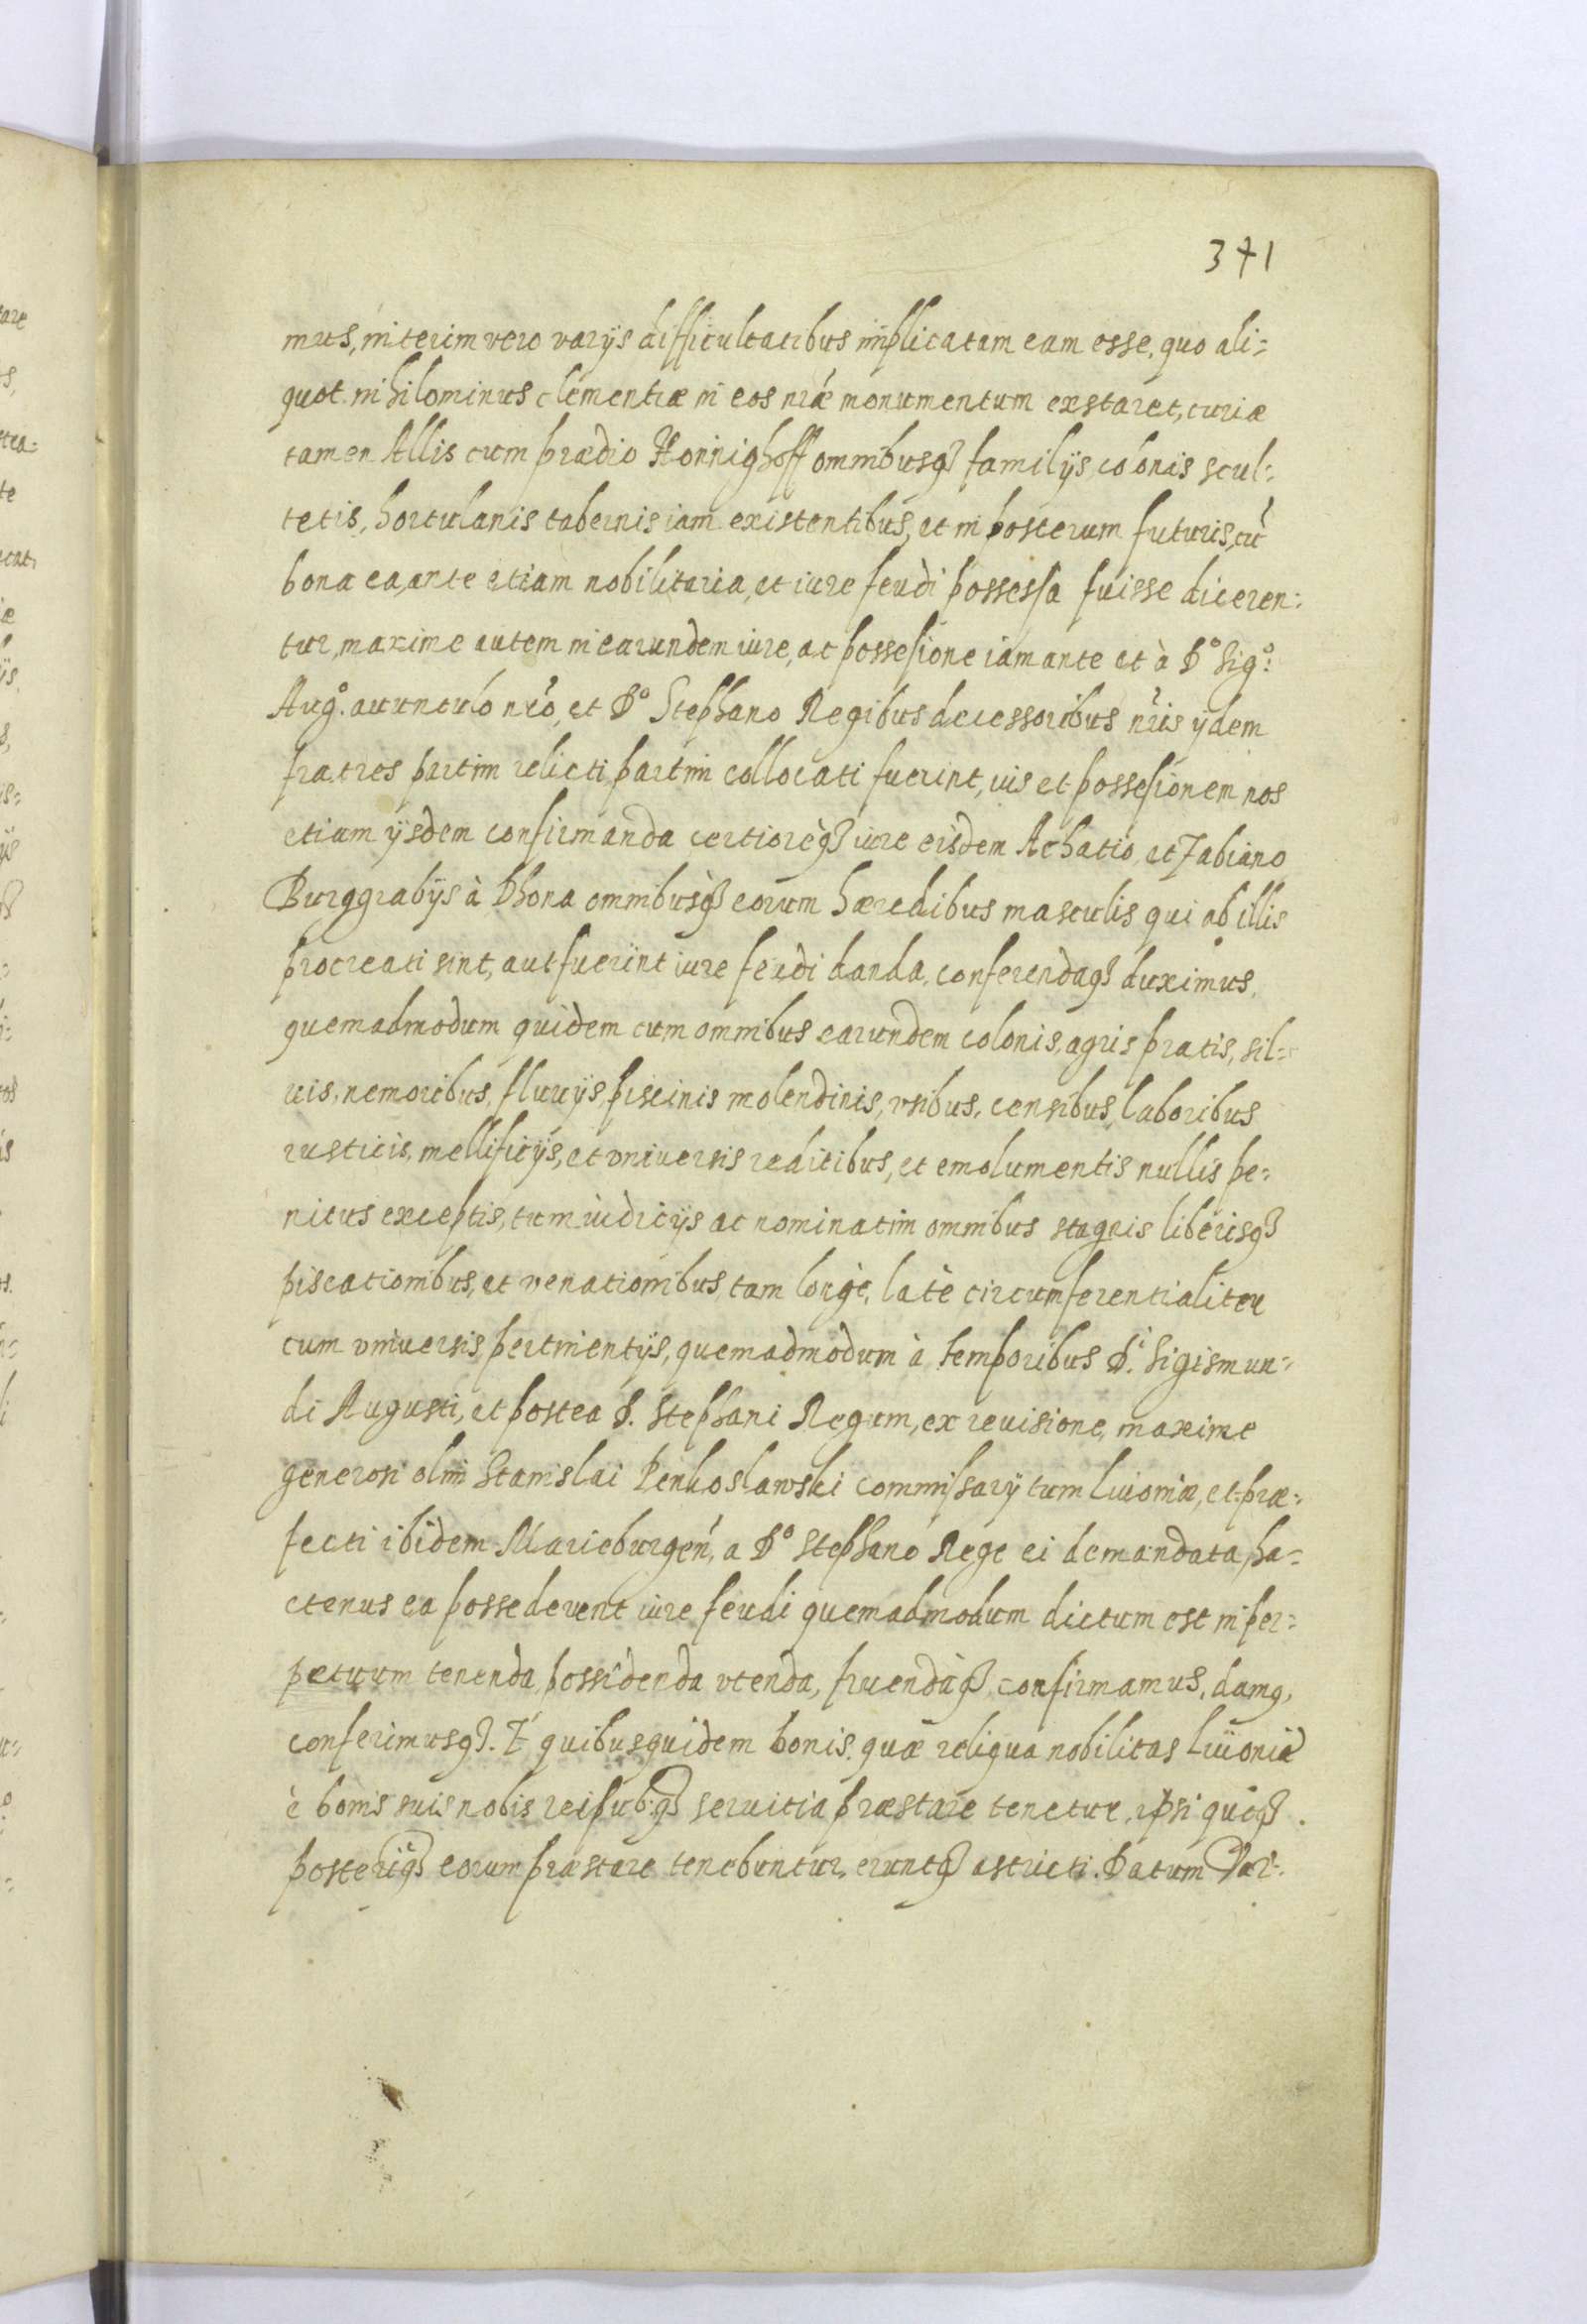 371
mus, interim vero varijs difficultatibus implicatam eam esse, quo ali=
quot nihilominus clementiæ in eos nræ monumentum exstaret, curiæ
tamen Allis cum prædio Honnighoff omnibusq3 familijs, colonis scul=
tetis, hortulanis tabernis iam existentibus, et in posterum futuris, cu
bona ea, ante etiam nobilitaria, et iure feudi possessa fuisse diceren=
tur, maxime autem in earundem iure, ac possesione iam ante et à Do Sigo:
Augo. auunculo nro, et Do Stephano Regibus decessoribus nris ijdem
fratres partim relicti, partim collocati fuerint, ius et possesionem nos
etiam ijsdem confirmanda certioreq3 iure eisdem Achatio, et Fabiano
Burggrabijs à Dhona omnibusq3 eorum hæredibus masculis qui ab illis
procreati sint, aut fuerint iure feudi danda, conferendaq3 duximus,
quemadmodum quidem cum omnibus earundem colonis, agris pratis, sil=
uis, nemoribus, fluuijs, piscinis molendinis, vsibus, censibus, laboribus
rusticis, mellificijs, et vniuersis reditibus, et emolumentis nullis pe=
nitus exceptis, tum iudicijs ac nominatim omnibus stagnis liberisq3
piscationibus, et venationibus, tam longè, latè circumferentialiter
cum vniuersis pertinentijs, quemadmodum à temporibus Di. Sigismun=
di Augusti, et postea D. Stephani Regum, ex reuisione, maxime
generosi olim Stanislai Penkoslawski Commissarij tum Liuoniæ, et præ=
fecti ibidem Marieburgen, a Do Stephano Rege ei demandata, ha=
ctenus ea possederent iure feudi quemadmodum dictum est in per=
petuum tenenda, possidenda vtenda, fruendaq3 confirmamus, damq,
conferimusq3. E quibusquidem bonis, quæ reliqua nobilitas Liuoniæ
è bonis suis nobis reipub:q3 seruitia præstare tenetur, ipsi quoq3
posteriq3 eorum præstare tenebuntur, eruntq3 astricti. Datum Var=